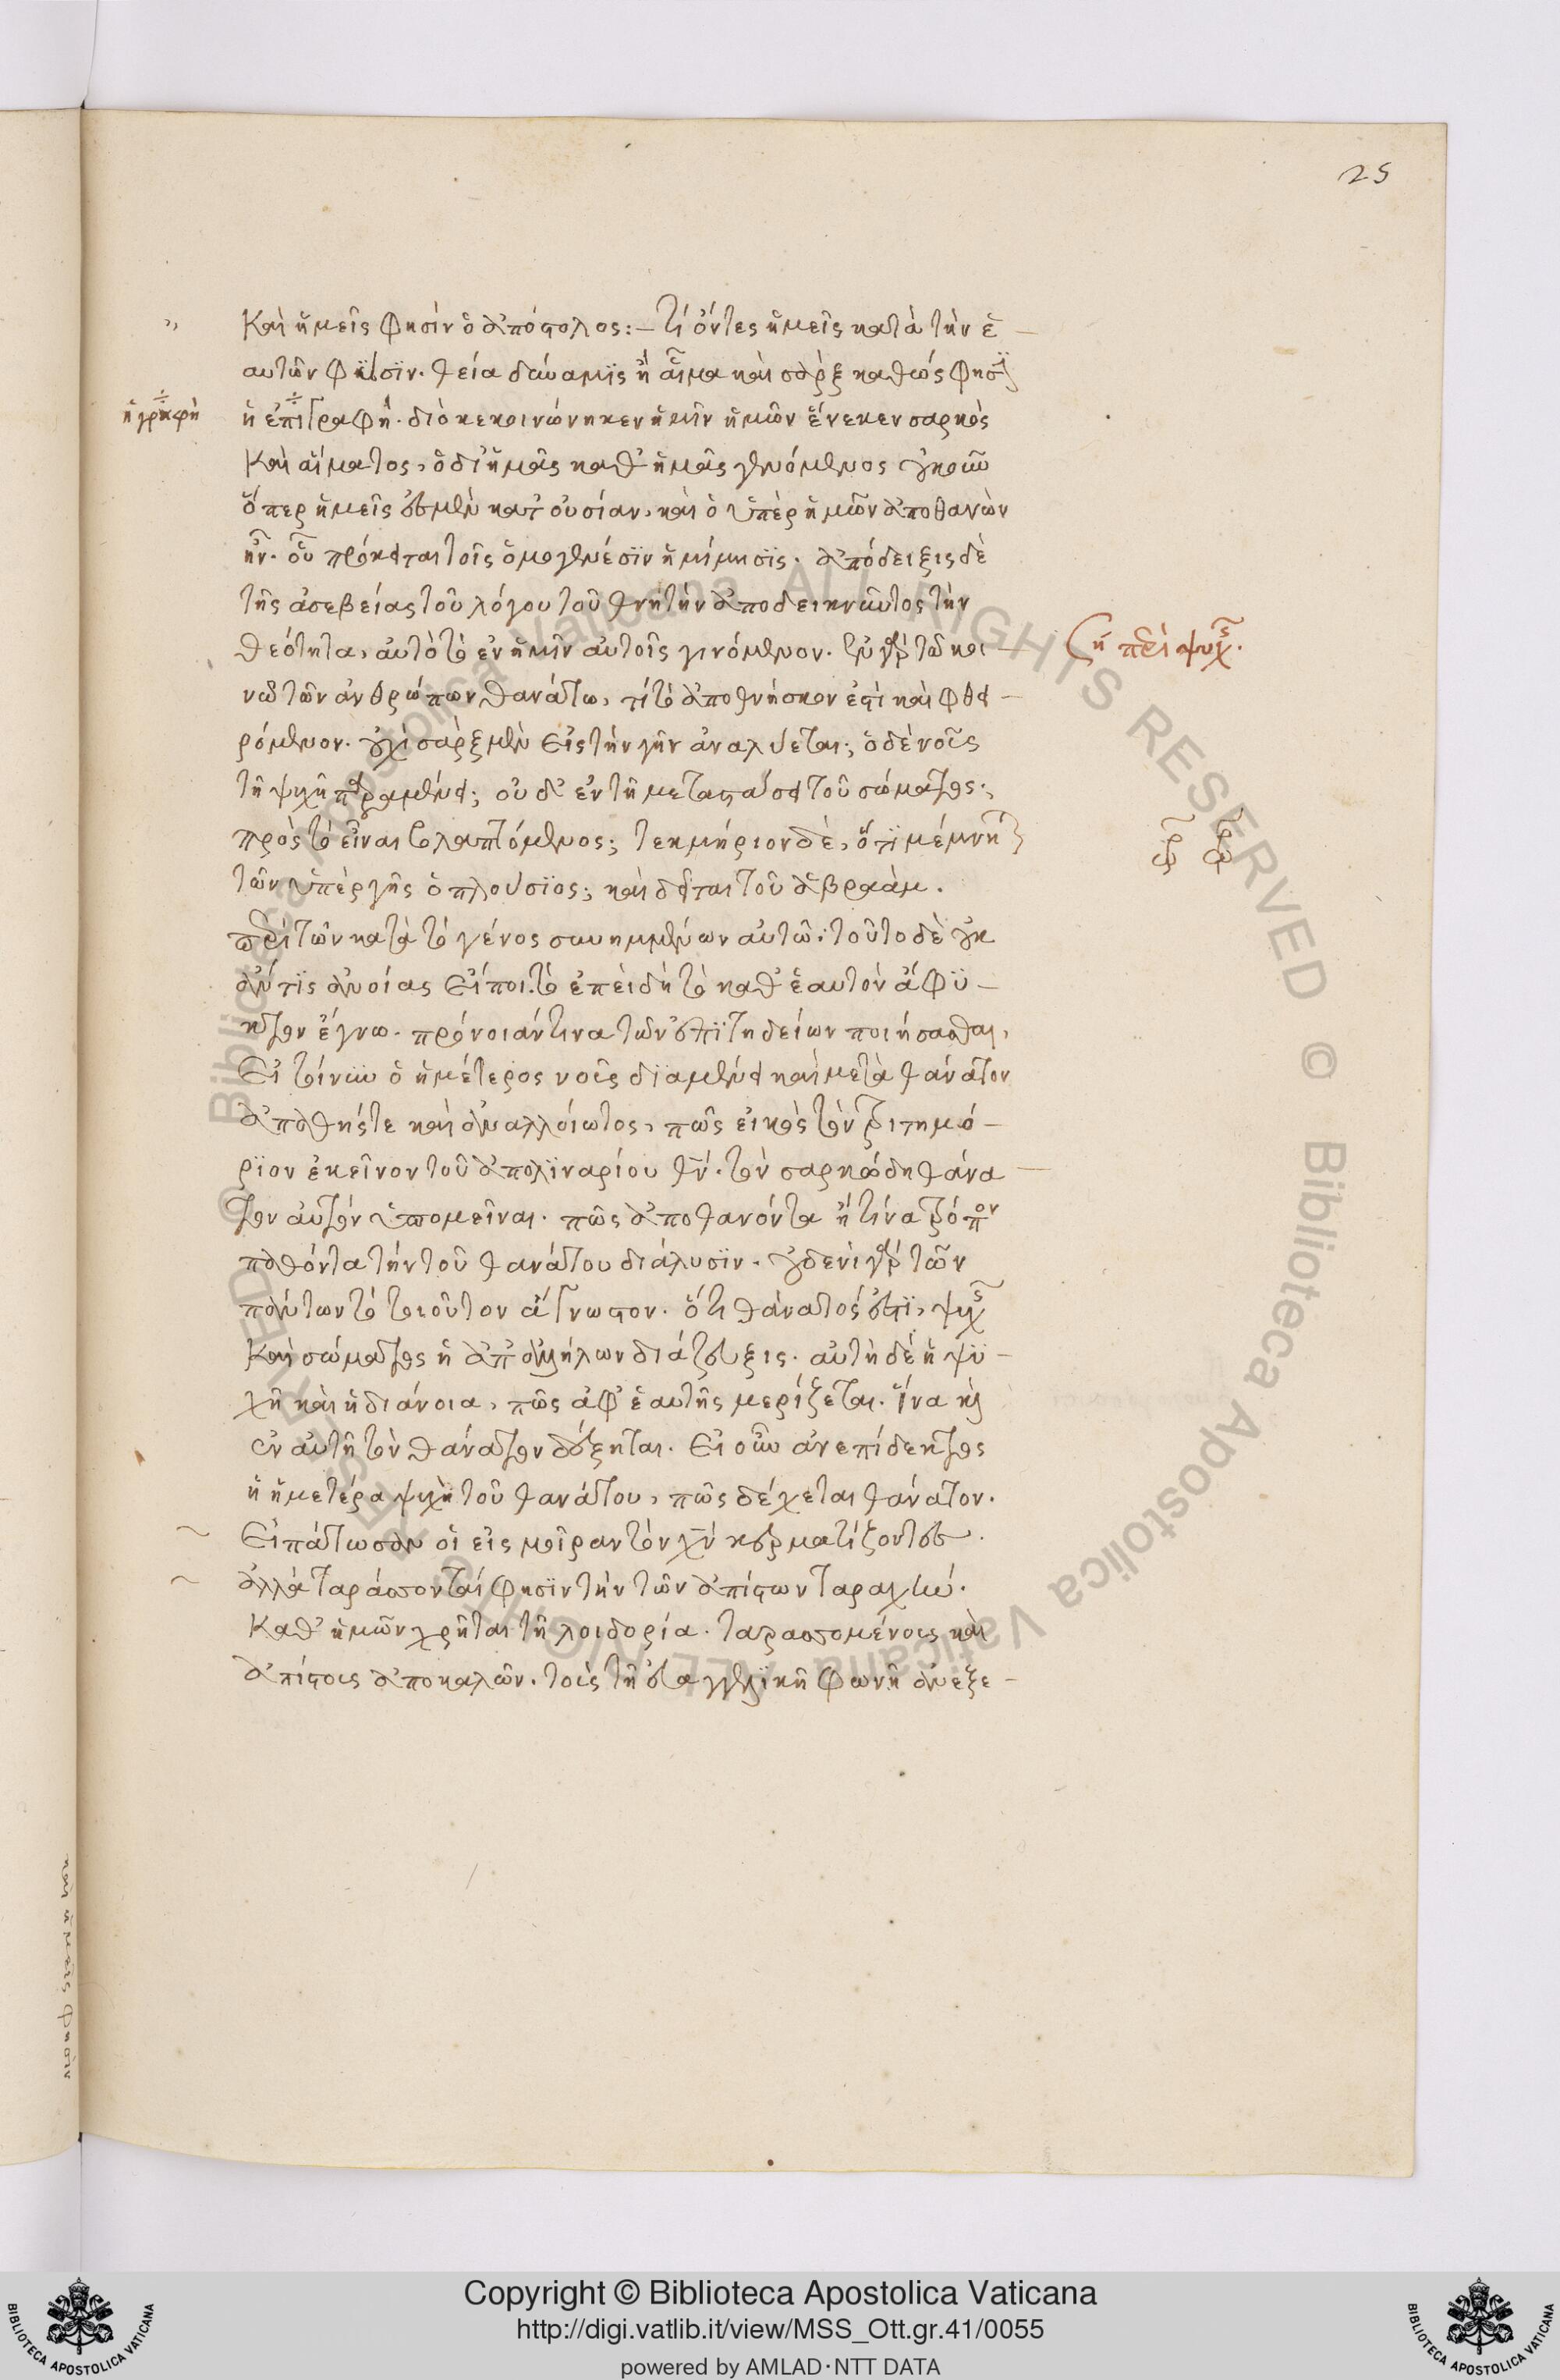 25
καὶ ἡμεῖς φησὶν ὁ ἀπόστολος:– τί ὄντες ἡμεῖς κατὰ τὴν ἑ–
αυτῶν φύσϊν. θεία δύναμϊς ἢ αἷμα καὶ σὰρξ καθώς φησϊ
ἡ γραφὴ
ἡ ἐπιγραφή. διὸ κεκοινώνηκεν ἡμῖν ἡμῶν ἕνεκεν σαρκὸς
καὶ αἵματος, ὁ δι' ἡμᾶς καθ' ἡμᾶς γενόμενος
ὅπερ ἡμεῖς ἐσμὲν κατ' οὐσίαν, καὶ ὁ ὑπὲρ ἡμῶν ἀποθανὼν
ἦν. οὗ πρόκειται τοῖς ὁμογενέσϊν ἡ μίμησϊς. ἀπόδειξις δὲ
τῆς ἀσεβείας τοῦ λόγου τοῦ θνητὴν ἀποδεικνῦντος τὴν
θεότητα, αὐτὸ τὸ ἐν ἡμῖν αὐτοῖς γινόμενον. ἐν γὰρ τῶ κοι–
νῶ τῶν ἀνθρώπων θανάτω, τί τὸ ἀποθνήσκον ἐστὶ καὶ φθει–
ρόμενον. οὐχὶ σὰρξ μὲν εἰς τὴν γῆν ἀναλύεται; ὁ δὲ νοῦς
τῆ ψυχῆ παραμένει; οὐδ' ἐν τῆ μεταστάσει τοῦ σώματος;
πρὸς τὸ εἶναι βλαπτόμενος; τεκμήριον δὲ, ὅτϊ μέμνηται
τῶν ὑπὲρ γῆς ὁ πλούσϊος; καὶ δεῖται τοῦ ἀβραάμ.
περὶ τῶν κατὰ τὸ γένος συνημμένων αὐτῶ; τοῦτο δὲ οὐκ
ἄν τϊς ἀνοίας εἴποι. τὸ ἐπειδὴ τὸ καθ' ἑαυτὸν ἄφϋ–
κτον ἔγνω. πρόνοιάν τινα τῶν ἐπϊτηδείων ποιήσασθαι,
εἰ τοίνυν ὁ ἡμέτερος νοῦς δϊαμένει καὶ μετὰ θάνατον
ἀπαθής τε καὶ ἀναλλοίωτος, πῶς εἰκὸς τὸν τριτημό–
ρϊον ἐκεῖνον τοῦ ἀπολϊναρίου θν. τὸν σαρκώδη θάνα–
τον αὐτὸν ὑπομεῖναι. πῶς ἀποθανόντα ἢ τίνα τρόπον
παθόντα τὴν τοῦ θανάτου διάλυσϊν. οὐδενὶ γὰρ τῶν
πάντων τὸ τοιοῦτον ἄγνωστον. ὅτι θάνατός ἐστϊ, ψυχῆς
καὶ σώματος ἡ ἀπ' ἀλλήλων διάζευξις. αὐτὴ δὲ ἡ ψϋ–
χὴ καὶ ἡ διάνοια, πῶς ἀφ' ἑαυτῆς μερίζεται. ἵνα καὶ
ἐν αὐτῆ τὸν θάνατον δέξηται. εἰ οὖν ἀνεπίδεκτος
ἡ ἡμετέρα ψυχὴ τοῦ θανάτου, πῶς δέχεται θάνατον.
εἰπάτωσαν οἱ εἰς μοῖραν τὸν χν κερματίζοντες.
ἀλλὰ ταράσσονται φησϊν τὴν τῶν ἀπίστων ταραχήν.
καθ' ἡμῶν χρῆται τῆ λοιδορία. ταρασσομένους καὶ
ἀπίστους ἀποκαλῶν. τοὺς τῆ εὐαγγελϊκῆ φωνῆ ἀνεξε–
ση περὶ ψυχῆς.
Copyright © Biblioteca Apostolica Vaticana
http://digi.vatlib.it/view/MSS_Ott.gr.41/0055
powered by AMLAD·NTT DATA